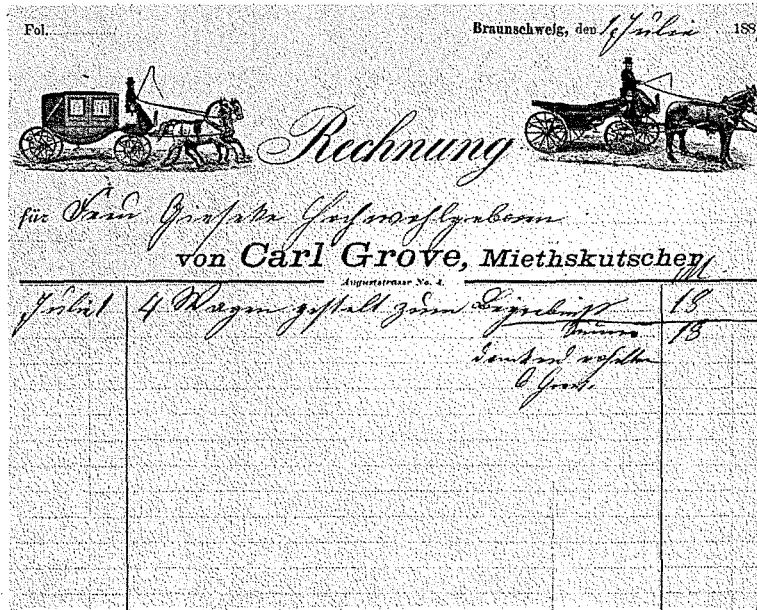 Fol.
Braunschweig, den 1 Julie 188
Rechnung
für Frau Gieseke Hochwohlgeboren
von Carl Grove, Miethskutscher
Auguststrasse No. 4.
M
Julie 1 4 Wagen gestelt zum Begrebniss 18
Summe 18
dankend erhalten
C Grove.